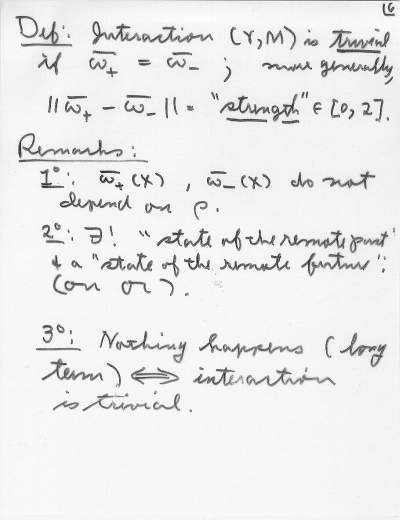 16
Def: Interaction (γ, M) is trivial
if ω̄₊ = ω̄₋ ; more generally,
||ω̄₊ - ω̄₋|| = "strength" ∈ [0, 2].
Remarks:
1°: ω̄₊(X), ω̄₋(X) do not
depend on ρ.
2°: ∃! "state of the remote past"
& a "state of the remote future";
(on α).
3°: Nothing happens (long
term) ⟺ interaction
is trivial.